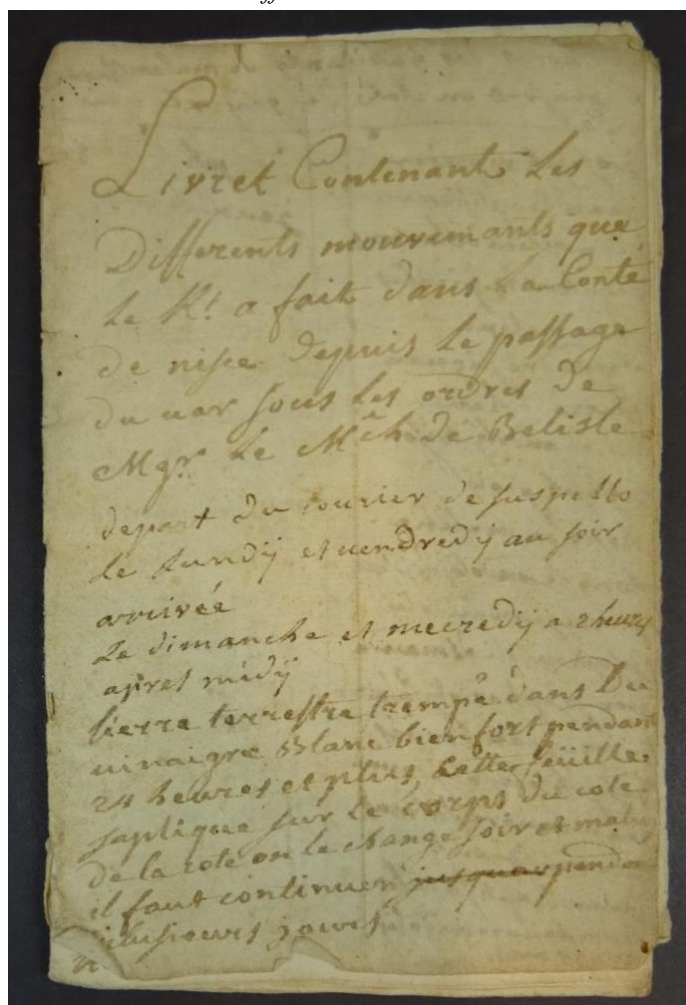 Livret Contenant Les
Differents mouvemants que
Le R.t a fait dans La Conté
de nisce Depuis Le passage
du var sous les ordres de
Mgr. Le Mch de Belisle
depart du courier de suspello
Le Lundij et vendredij au soir
arrivée
Le dimanche et mecredij a 2 heures
apres midij
lierre terrestre trempé dans Du
vinaigre Blanc bien fort pendant
24 heures et plus, Cette feüille
saplique sur Le corps du cote
de la cote on le change soir et matin
il faut continuer jusquar pendan
plusieurs jours